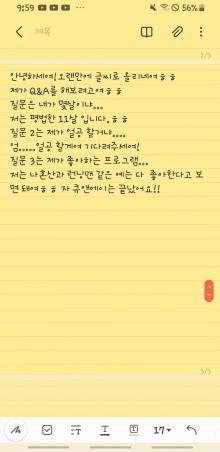 9:59
56%
제목
1/3
안녕하세여! 오랜만에 글씨로 올리네여ㅎㅎ
제가 Q&A를 해보려고여ㅎㅎ
질문은 내가 몇살이냐...
저는 평범한 11살 입니다.ㅎㅎ
질문 2는 제가 얼공 할거냐....
엄.....얼공 할게여 기다려주세여!
질문 3는 제가 좋아하는 프로그램...
저는 나혼산과 런닝맨 같은 예는 다 좋아한다고 보
면 돼여ㅎㅎ 자 큐앤에이는 끝났어요!!
3/3
17